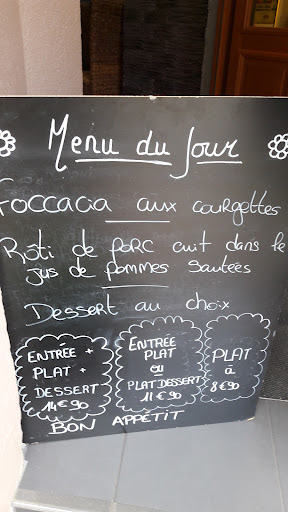 Menu du Jour
Foccacia aux courgettes
Rôti de porc cuit dans le
jus de pommes sautées
Dessert au choix
ENTRÉE +
PLAT +
DESSERT
14€90
ENTRÉE
PLAT
ou
PLAT DESSERT
11€90
PLAT
à
8€90
BON APPÉTIT